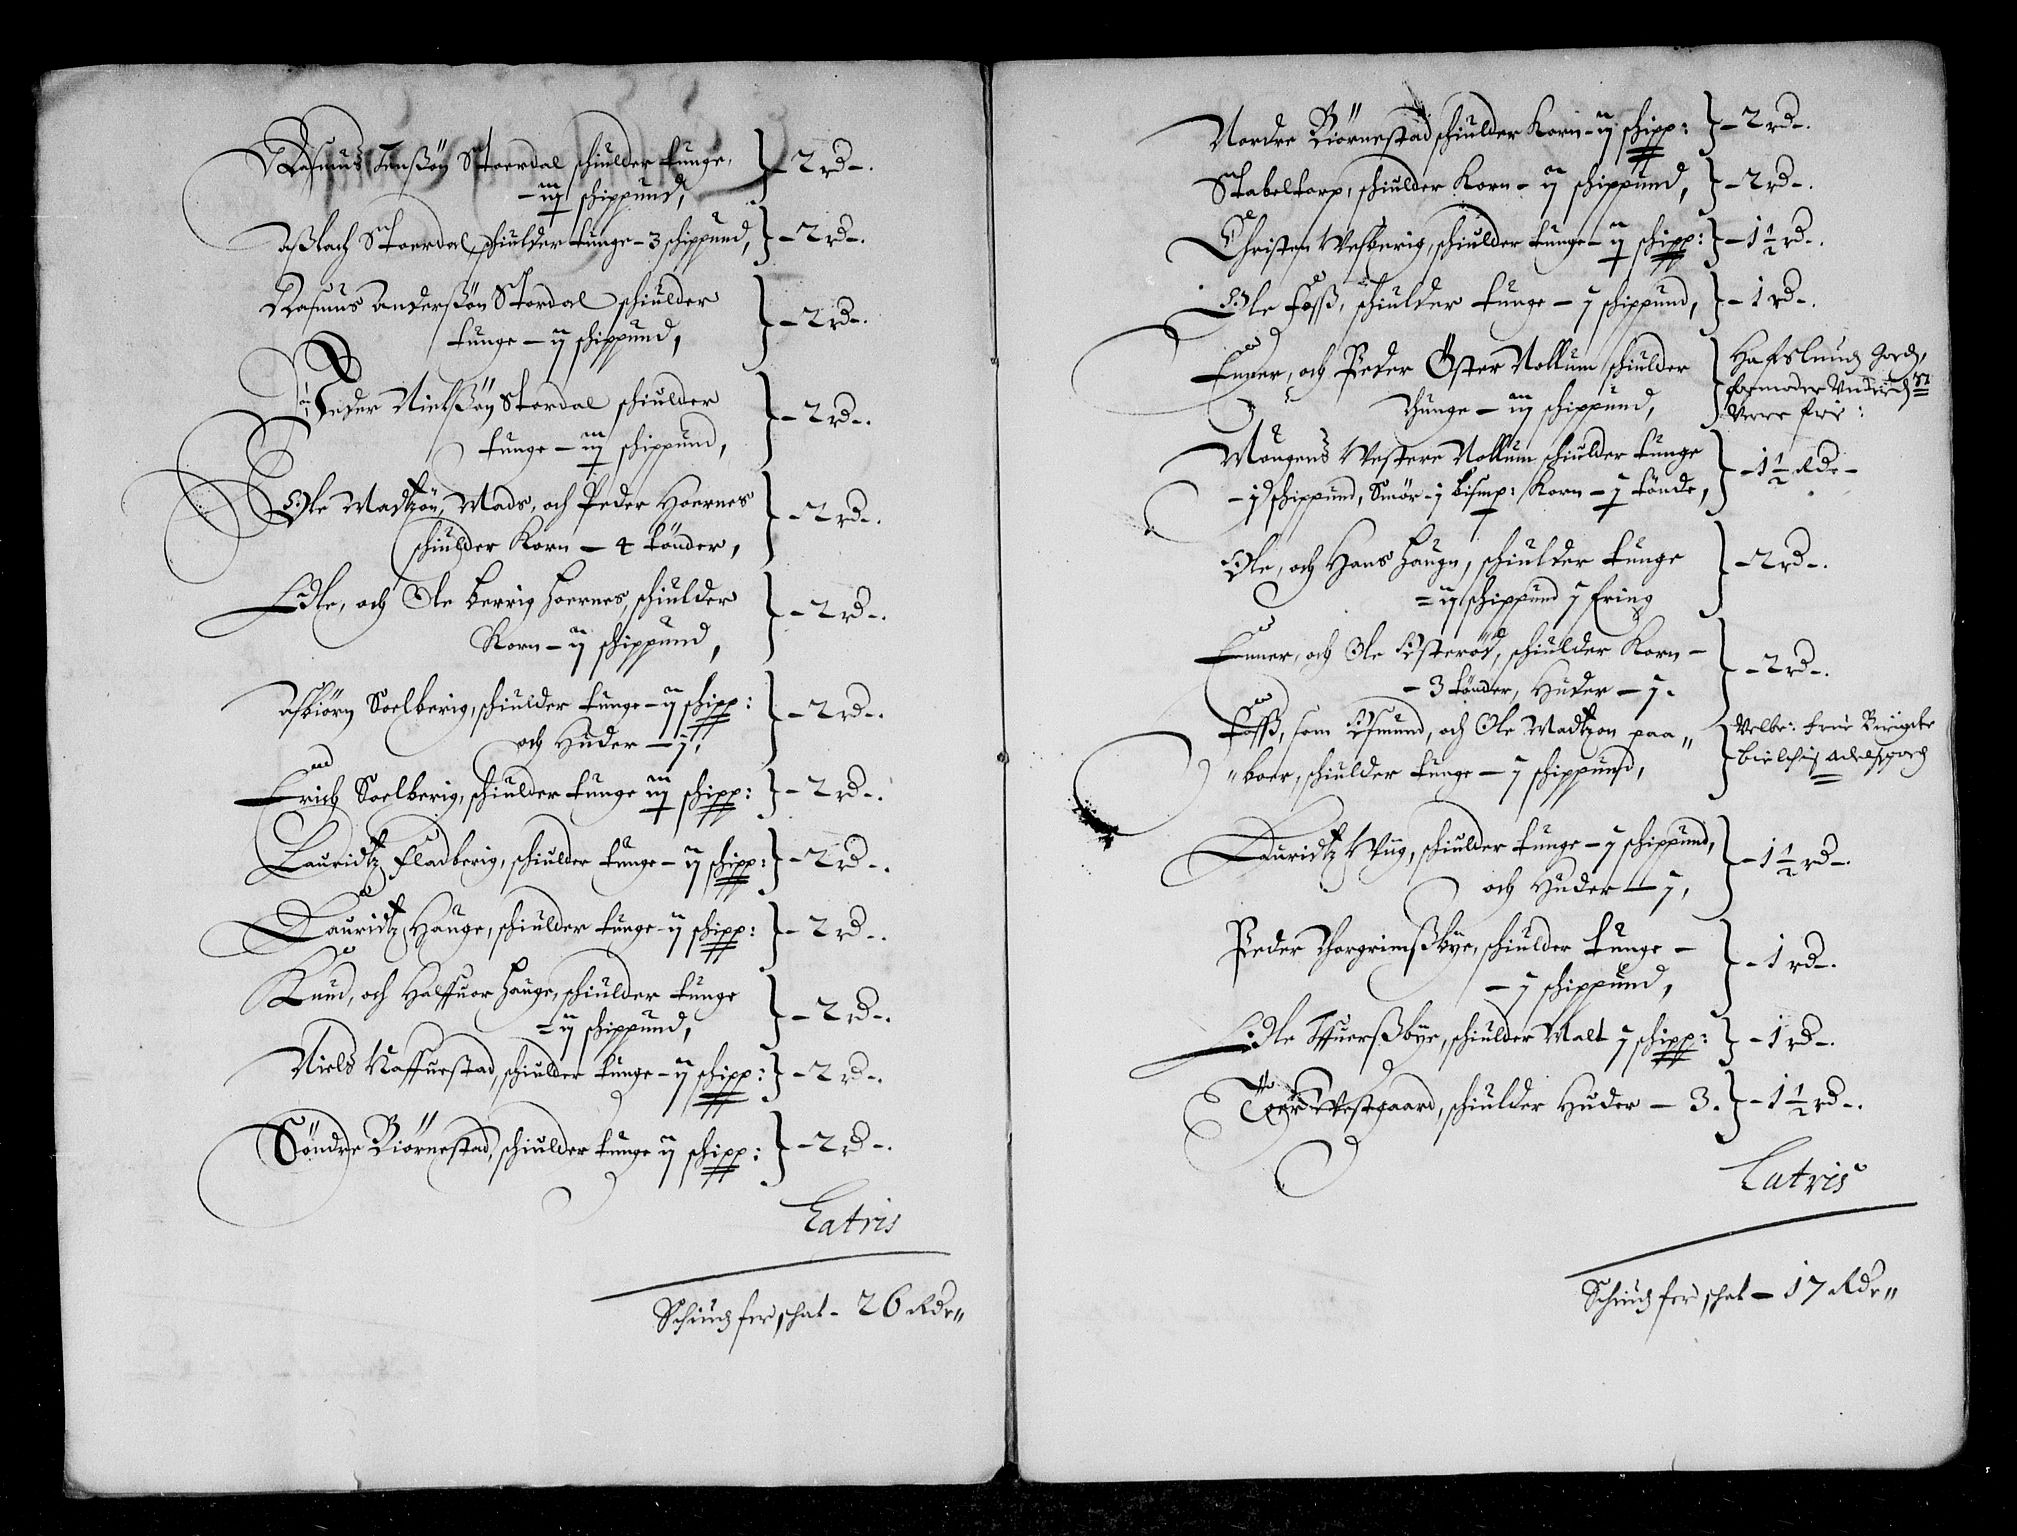 Rasmus Jenßøn Stoerdal schiulder tunge, } - 2 rd -.
- iij schippund,
Aßlach Stoerdal schiulder tunge - 3 schippund, } - 2 rd -.
Rasmus Anderßøn Stordal schiulder
tunge - ij schippund, } - 2 rd -.
Peder Nielßøn Stordal schiulder
tunge - iij schippund, } - 2 rd -.
Ole Madtzøn, Mads, och Peder Hoernes
schiulder Korn - 4 tønder, } - 2 rd -.
Ole, och Ole berrig hoernes, schiulder
Korn - ij schippund, } - 2 rd -.
Asbiørn Soelberig, schiulder tunge - ij schipp:
och Huder - j, } - 2 rd -.
Erich Soelberig, schiulder tunge iij schipp: } - 2 rd -.
Lauridtz Fladberig, schiulder tunge - ij schipp: } - 2 rd -.
Lauridtz Hauge, schiulder tunge - ij schipp: } - 2 rd -.
Knud, och Halffuor hauge, schiulder tunge
- ij schippund, } - 2 rd -.
Niels Naffuestad, schiulder tunge - ij schipp: } - 2 rd -.
Søndre Biørnestad, schiulder tunge ij schipp: } - 2 rd -.
Latris
Schiudz ferd schat - 26 Rdr„
Nordre Biørnestad schiulder Korn - ij schipp: } - 2 rd -.
Stabeltorp, schiulder Korn - ij schippund, } - 2 rd -.
Christen Vesberig, schiulder tunge - ij schipp: } - 1 1/2 rd -.
Ole Foss, schiulder tunge - j schippund, } - 1 rd -.
Enner, och Peder Øster Nollum schiulder
thunge - iij schippund, } Hafslund Gord,
formoder
Verre frie:
Mougens Vestere Nollum schiulder tunge
- j schippund, Smør - j bismp: Korn - j tønde, } - 1 1/2 Rdr -
Ole, och Hans haugn, schiulder tunge
- ij schippund j fring } - 2 rd -.
Enner, och Ole Østerød, schiulder Korn -
- 3 tønder, Huder - j. } - 2 rd -.
Foss, som Osmund, och Ole Madtzon paa„
„boer, schiulder tunge - j schippund, } Velbr: Frue Birigete
bielchis adelsgord
Lauridtz Viig, schiulder tunge - j schippund,
och Huder - j, } - 1 1/2 rd -.
Peder Thorgrimßbye, schiulder tunge -
- j schippund, } - 1 rd -.
Ole Iffuerßbye, schiulder Malt j schipp: } - 1 rd -.
Toer Westgaard, schiulder Huder - 3. } - 1 1/2 rd -.
Latris
Schiudz ferd schat - 17 Rdr„